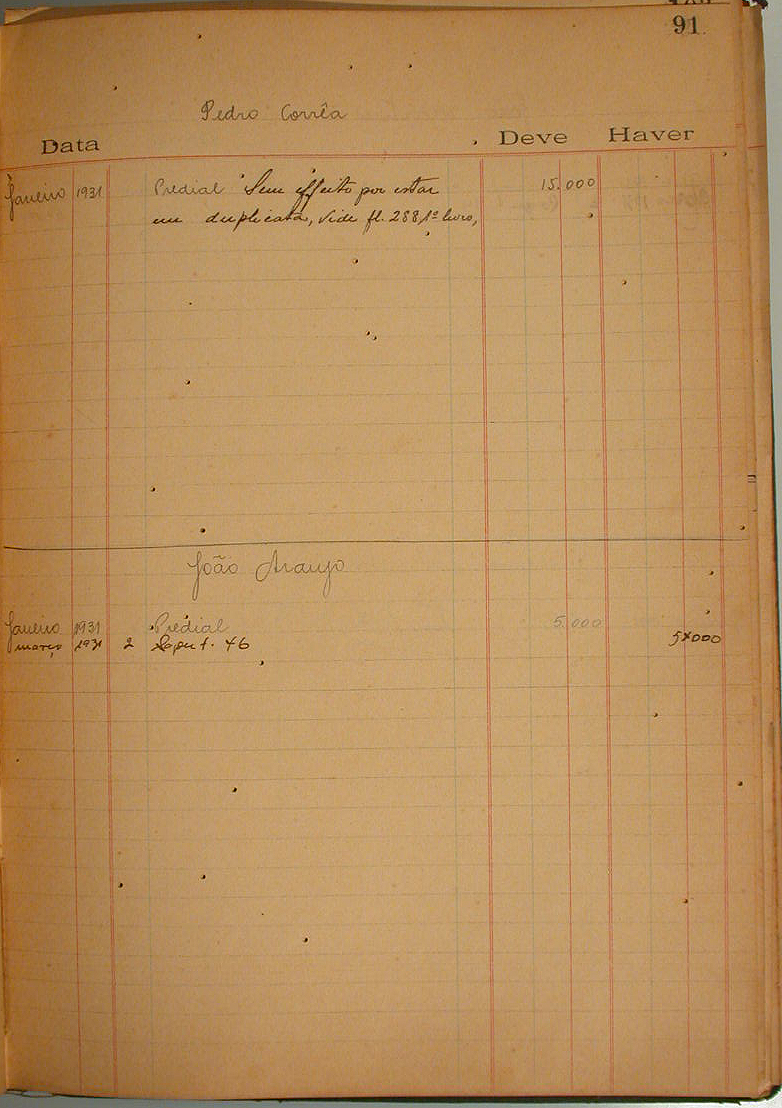 91
Pedro Corrêa
Data Deve Haver
Janeiro 1931 Predial Sem effeito por estar 15.000
em duplicata, vide fl. 288, 1º livro,
João Araujo
Janeiro 1931 Predial 5.000
março 1931 2 46 5$000